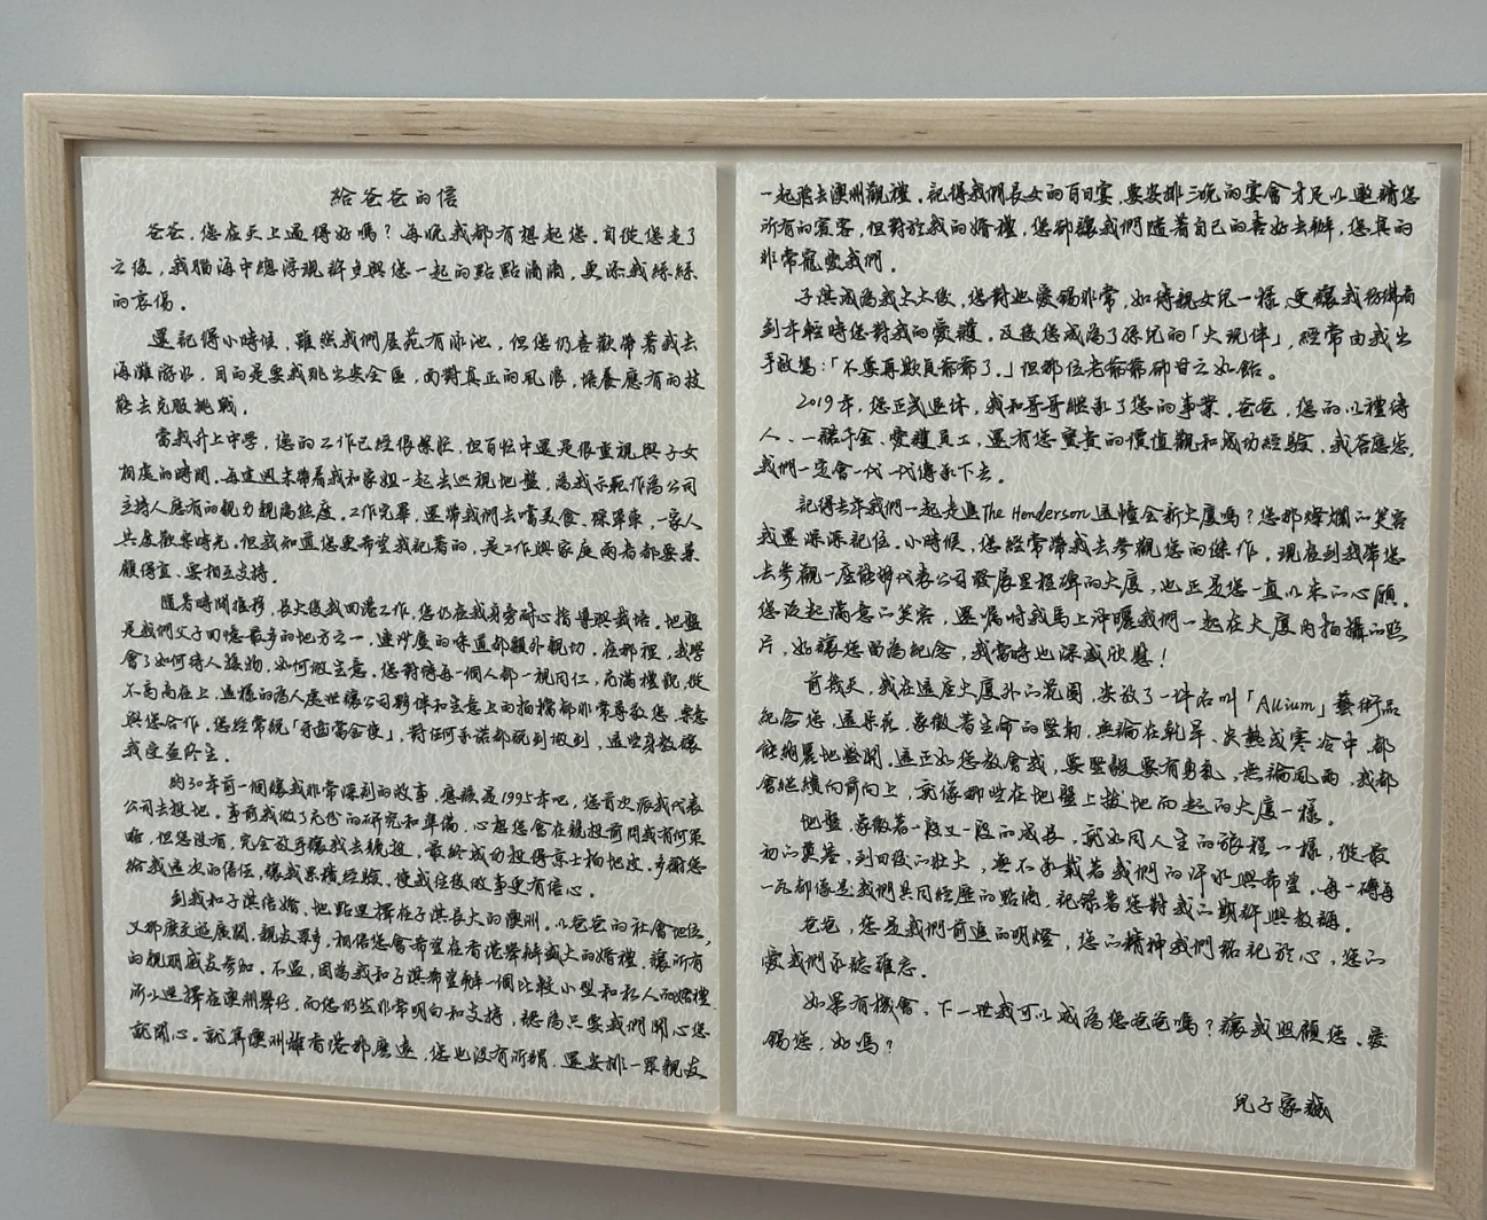 給爸爸的信
爸爸，您在天上過得好嗎？每晚我都有想起您。自從您走了
之後，我腦海中總浮現許多與您一起的點點滴滴，更添我絲絲
的哀傷。
還記得小時候，雖然我們屋苑有泳池，但您仍喜歡帶著我去
海灘游水，目的是要我跳出安全區，面對真正的風浪，培養應有的技
能去克服挑戰。
當我升上中學，您的工作已經很繁忙，但百忙中還是很重視與子女
相處的時間。每逢週末帶着我和家姐一起去巡視地盤，為我示範作為公司
主持人應有的親力親為態度。工作完畢，還帶我們去嚐美食、踩單車，一家人
共度歡樂時光。但我知道您更希望我記著的，是工作與家庭兩者都要兼
顧得宜、要相互支持。
隨著時間推移，長大後我回港工作，您仍在我身旁耐心指導與栽培。地盤
是我們父子回憶最多的地方之一，連沙塵的味道都額外親切。在那裡，我學
會了如何待人接物，如何做生意。您對待每一個人都一視同仁，充滿禮貌，從
不高高在上，這樣的為人處世讓公司夥伴和生意上的拍檔都非常尊敬您，樂意
與您合作。您經常說「牙齒當金使」，對任何承諾都說到做到，這些身教讓
我受益終生。
約30年前一個讓我非常深刻的故事，應該是1995年吧，您首次派我代表
公司去投地。事前我做了充份的研究和準備，心想您會在競投前問我有何策
略，但您沒有，完全放手讓我去競投，最終成功投得京士柏地皮。多謝您
給我這次的信任，讓我累積經驗，使我往後做事更有信心。
到我和子淇結婚，地點選擇在子淇長大的澳洲。以爸爸的社會地位，
又那麼交遊廣闊，親友眾多，相信您會希望在香港舉辦盛大的婚禮，讓所有
的親朋戚友參加。不過，因為我和子淇希望辦一個比較小型和私人的婚禮，
所以選擇在澳洲舉行，而您仍然非常明白和支持，認為只要我們開心您
就開心。就算澳洲離香港那麼遠，您也沒有所謂，還安排一眾親友
一起飛去澳洲觀禮。記得我們長女的百日宴，要安排三晚的宴會才足以邀請您
所有的賓客，但對於我的婚禮，您卻讓我們隨著自己的喜好去辦，您真的
非常寵愛我們。
子淇成為我太太後，您對她愛錫非常，如待親女兒一樣，更讓我彷彿看
到年輕時您對我的愛護。及後您成為了孫兒的「大玩伴」，經常由我出
手救駕：「不要再欺負爺爺了。」但那位老爺爺卻甘之如飴。
2019年，您正式退休，我和哥哥繼承了您的事業。爸爸，您的以禮待
人、一諾千金、愛護員工，還有您寶貴的價值觀和成功經驗，我答應您，
我們一定會一代一代傳承下去。
記得去年我們一起走進The Henderson這幢全新大廈嗎？您那燦爛的笑容
我還深深記住。小時候，您經常帶我去參觀您的傑作，現在到我帶您
去參觀一座能夠代表公司發展里程碑的大廈，也正是您一直以來的心願。
您泛起滿意的笑容，還囑咐我馬上沖曬我們一起在大廈內拍攝的照
片，好讓您留為紀念，我當時也深感欣慰！
前幾天，我在這座大廈外的花園，安放了一件名叫「Allium」藝術品
紀念您，這朵花，象徵著生命的堅韌，無論在乾旱、炎熱或寒冷中，都
能絢麗地盛開。這正如您教會我，要堅毅要有勇氣，無論風雨，我都
會繼續向前向上，就像那些在地盤上拔地而起的大廈一樣。
地盤，象徵著一段又一段的成長，就如同人生的旅程一樣，從最
初的奠基，到日後的壯大，無不承載著我們的汗水與希望。每一磚每
一瓦都像是我們共同經歷的點滴，記錄著您對我的期許與教誨。
爸爸，您是我們前進的明燈，您的精神我們銘記於心，您的
愛我們永遠難忘。
如果有機會，下一世我可以成為您爸爸嗎？讓我照顧您、愛
錫您，好嗎？
兒子家誠